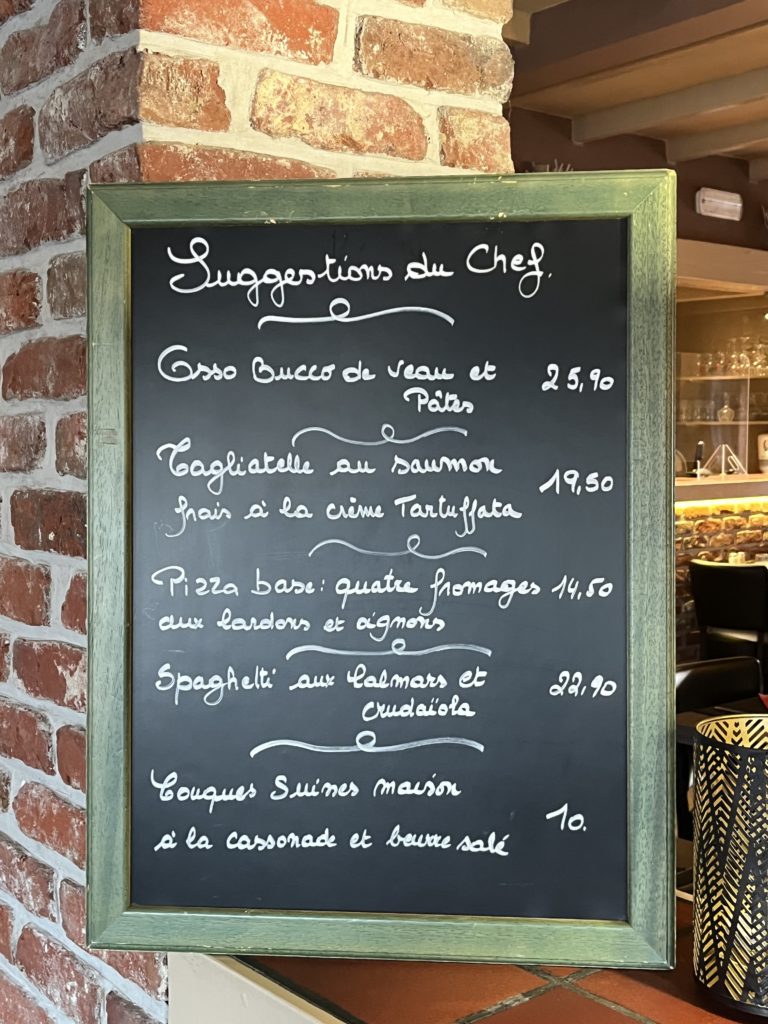 Suggestions du Chef.
Osso Bucco de veau et 25,90
Pâtes
Tagliatelle au saumon
19,50
frais à la crème Tartuffata
Pizza base: quatre fromages 14,50
aux lardons et oignons
Spaghetti aux Calmars et 22,90
Crudaïola
Couques Suisses maison
10.
à la cassonade et beurre salé